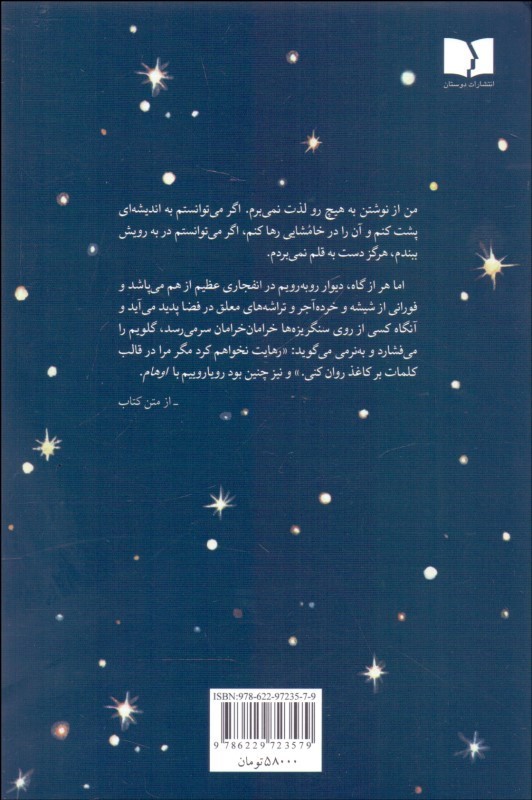 انتشارات دوستان
من از نوشتن به هیچ رو لذت نمی‌برم. اگر می‌توانستم به اندیشه‌ای
پشت کنم و آن را در خامُشایی رها کنم، اگر می‌توانستم در به رویش
ببندم، هرگز دست به قلم نمی‌بردم.
اما هر از گاه، دیوار روبه‌رویم در انفجاری عظیم از هم می‌پاشد و
فورانی از شیشه و خرده‌آجر و تراشه‌های معلق در فضا پدید می‌آید و
آنگاه کسی از روی سنگریزه‌ها خرامان‌خرامان سر می‌رسد، گلویم را
می‌فشارد و به‌نرمی می‌گوید: «رهایت نخواهم کرد مگر مرا در قالب
کلمات بر کاغذ روان کنی.» و نیز چنین بود رویاروییم با اوهام.
ـ از متن کتاب
ISBN:978-622-97235-7-9
9 786229 723579
۵۸۰۰۰ تومان